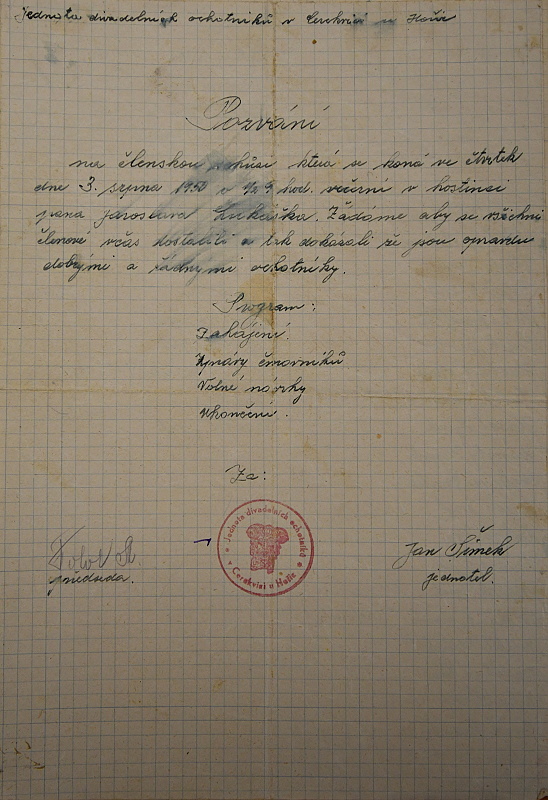 Jednota divadelních ochotníků v Cerekvici u Hořic
Pozvání
na členskou schůzi která se koná ve čtvrtek
dne 3. srpna 1950 v 1/2 9 hod. večerní v hostinci
pana Jaroslava Lukáška. Žádáme aby se všichni
členové včas dostavili a tak dokázali že jsou opravdu
dobrými a řádnými ochotníky.
Program:
Zahájení.
Zprávy činovníků
Volné návrhy
Ukončení.
Za:
Jednota divadelních ochotníků
v Cerekvici u Hořic
předseda.
Jan Šimek
jednatel.